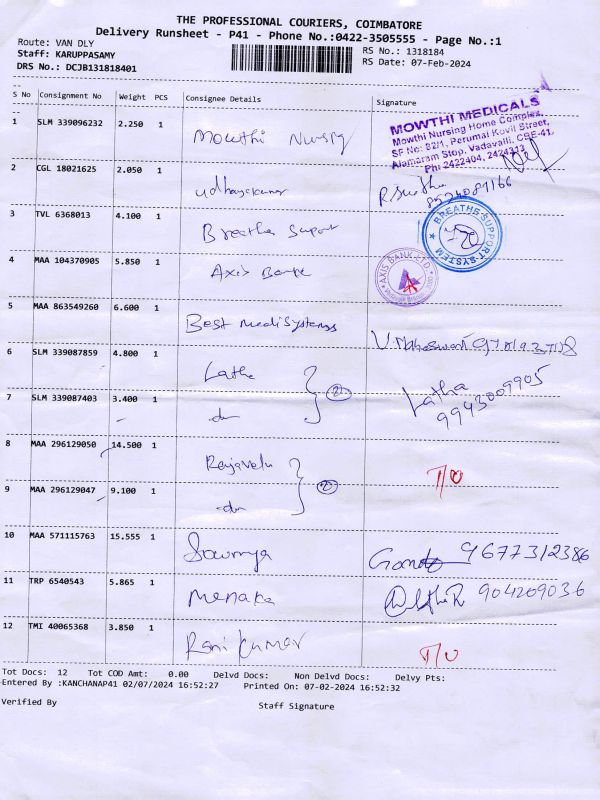 THE PROFESSIONAL COURIERS, COIMBATORE
Delivery Runsheet - P41 - Phone No.:0422-3505555 - Page No.:1
Route: VAN DLY
RS No.: 1318184
Staff: KARUPPASAMY
RS Date: 07-Feb-2024
DRS No.: DCJB131818401
S No Consignment No Weight PCS Consignee Details Signature
1 SLM 339096232 2.250 1 Mowthi Nursing
MOWTHI MEDICALS
Mowthi Nursing Home Complex,
SF No: 82/1, Perumal Kovil Street,
Alamaram Stop, Vadavalli, CBE-41.
Ph: 2422404, 2424313
2 CGL 18021625 2.050 1 udhayakumar
8524081166
3 TVL 6368013 4.100 1 Breathe Support
BREATHE SUPPORT SYSTEM
4 MAA 104370905 5.850 1 Axis Bank
AXIS BANK LTD.
5 MAA 863549260 6.600 1 Best medisystems
6 SLM 339087859 4.800 1 Latha
2
Latha
9943009905
7 SLM 339087403 3.400 1 -do-
8 MAA 296129050 14.500 1 Rajavelu
2
T/O
9 MAA 296129047 9.100 1 -do-
10 MAA 571115763 15.555 1 Sowmya 9677312386
11 TRP 6540543 5.865 1 Menaka 904209036
12 TMI 40065368 3.850 1 Ranikumar T/O
Tot Docs: 12 Tot COD Amt: 0.00 Delvd Docs: Non Delvd Docs: Delvy Pts:
Entered By :KANCHANAP41 02/07/2024 16:52:27 Printed On: 07-02-2024 16:52:32
Verified By Staff Signature